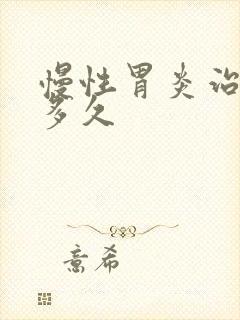 慢性胃炎治
多久
意希